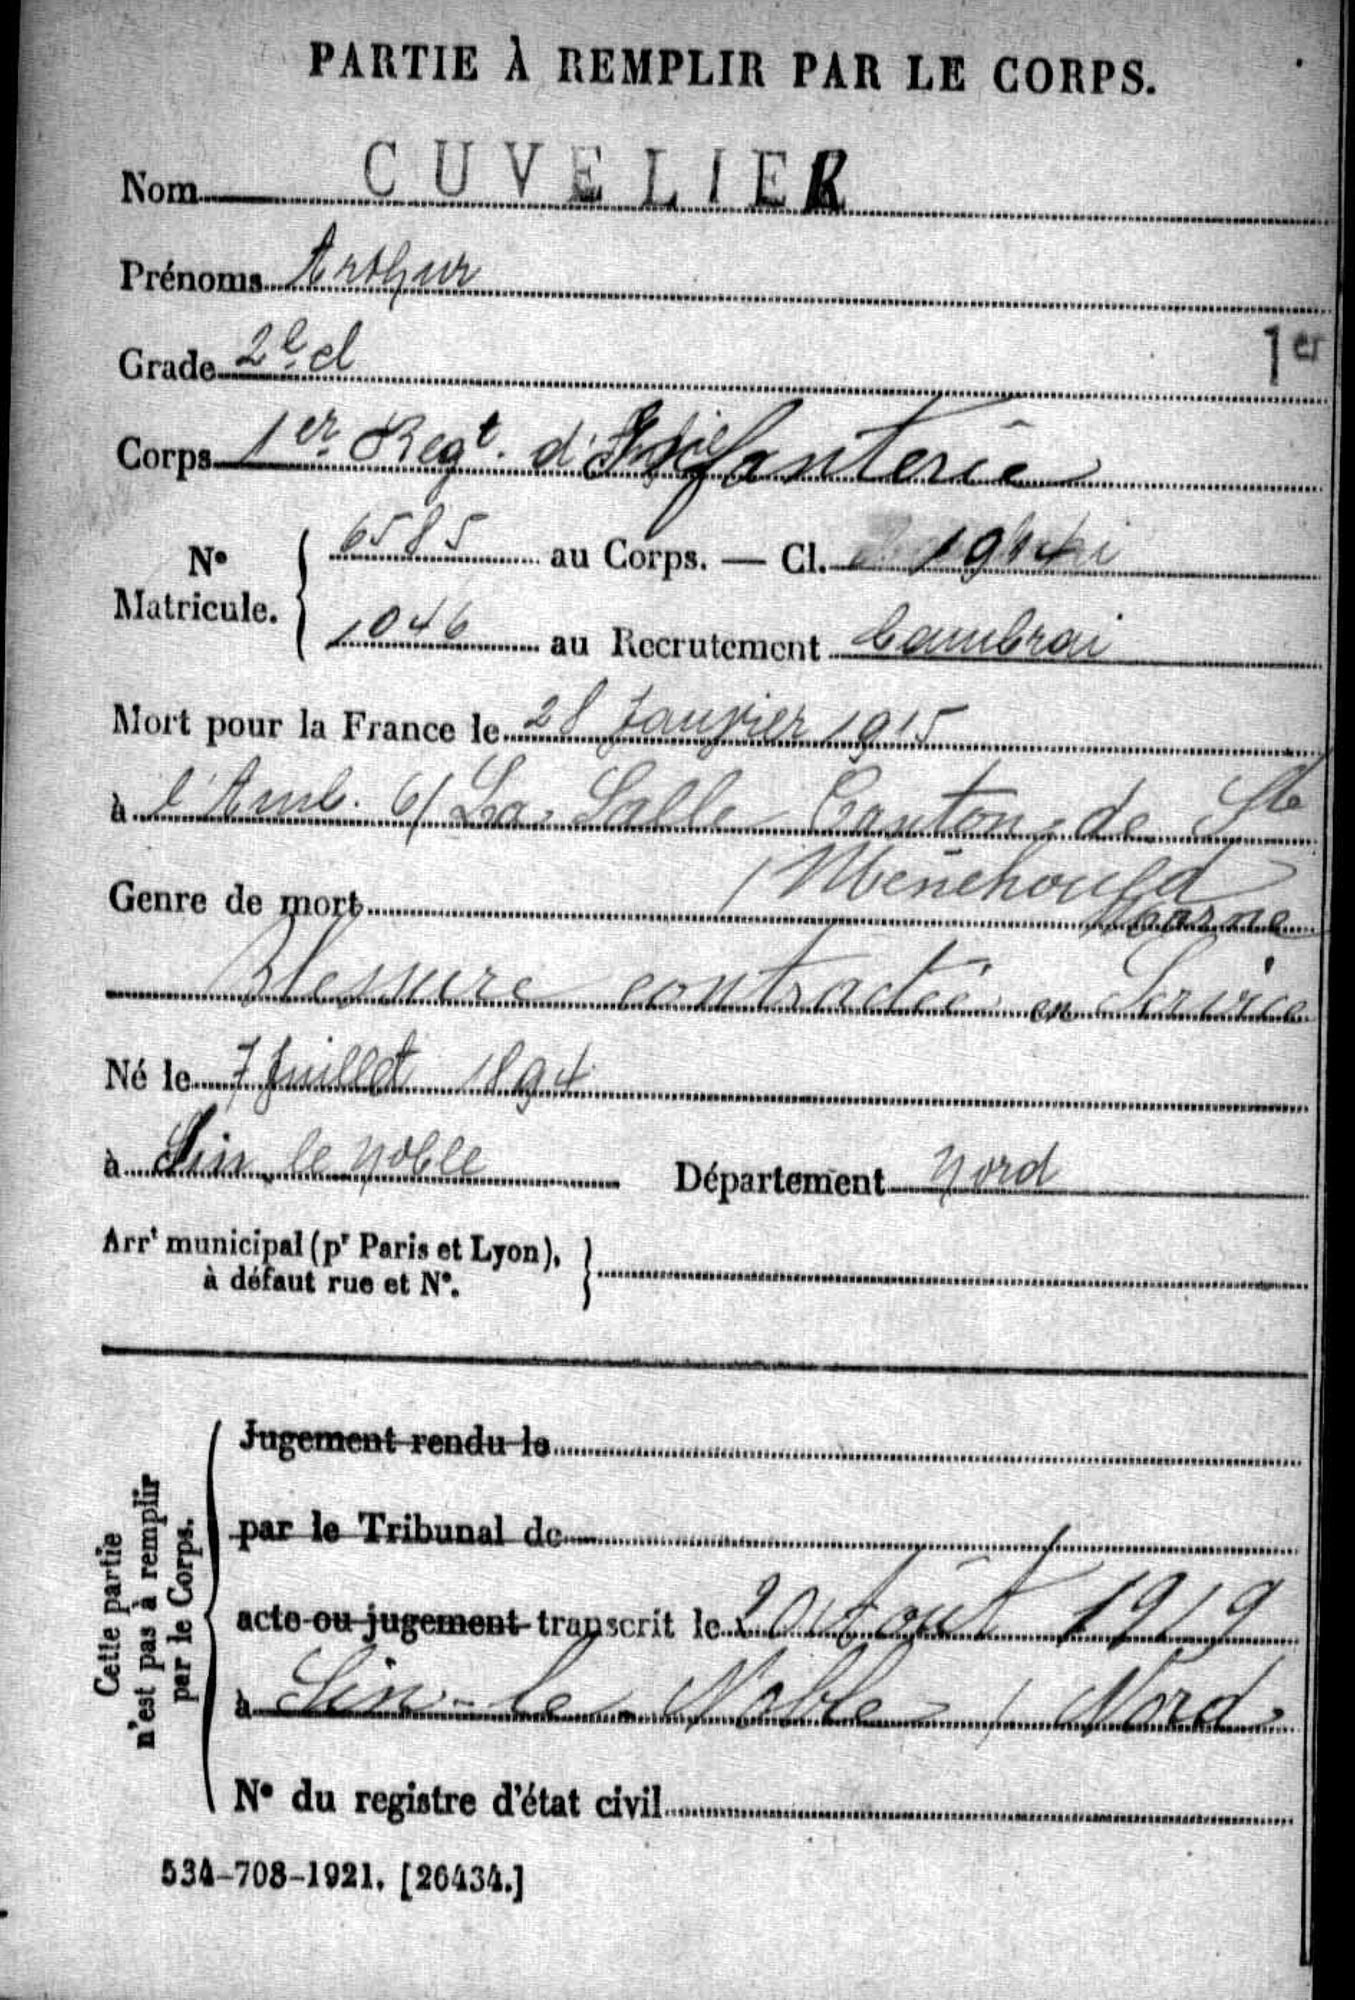 PARTIE À REMPLIR PAR LE CORPS.
Nom CUVELIER
Prénoms Arthur
Grade 2e cl
1er
Corps 1er Regt. d'Infanterie
No Matricule. { 6585 au Corps. — Cl. 1914
1046 au Recrutement Cambrai
Mort pour la France le 28 Janvier 1915
à l'Amb. 6/ La Salle Canton de Ste
Menehould
Marne
Genre de mort
Blessure contractée en Service
Né le 7 Juillet 1894
à Sin le noble Département Nord
Arrt municipal (pr Paris et Lyon),
à défaut rue et No.
Cette partie
n'est pas à remplir
par le Corps.
Jugement rendu le
par le Tribunal de
acte ou jugement transcrit le 20 Août 1919
à Sin-le-Noble / Nord
No du registre d'état civil
534-708-1921. [26434.]